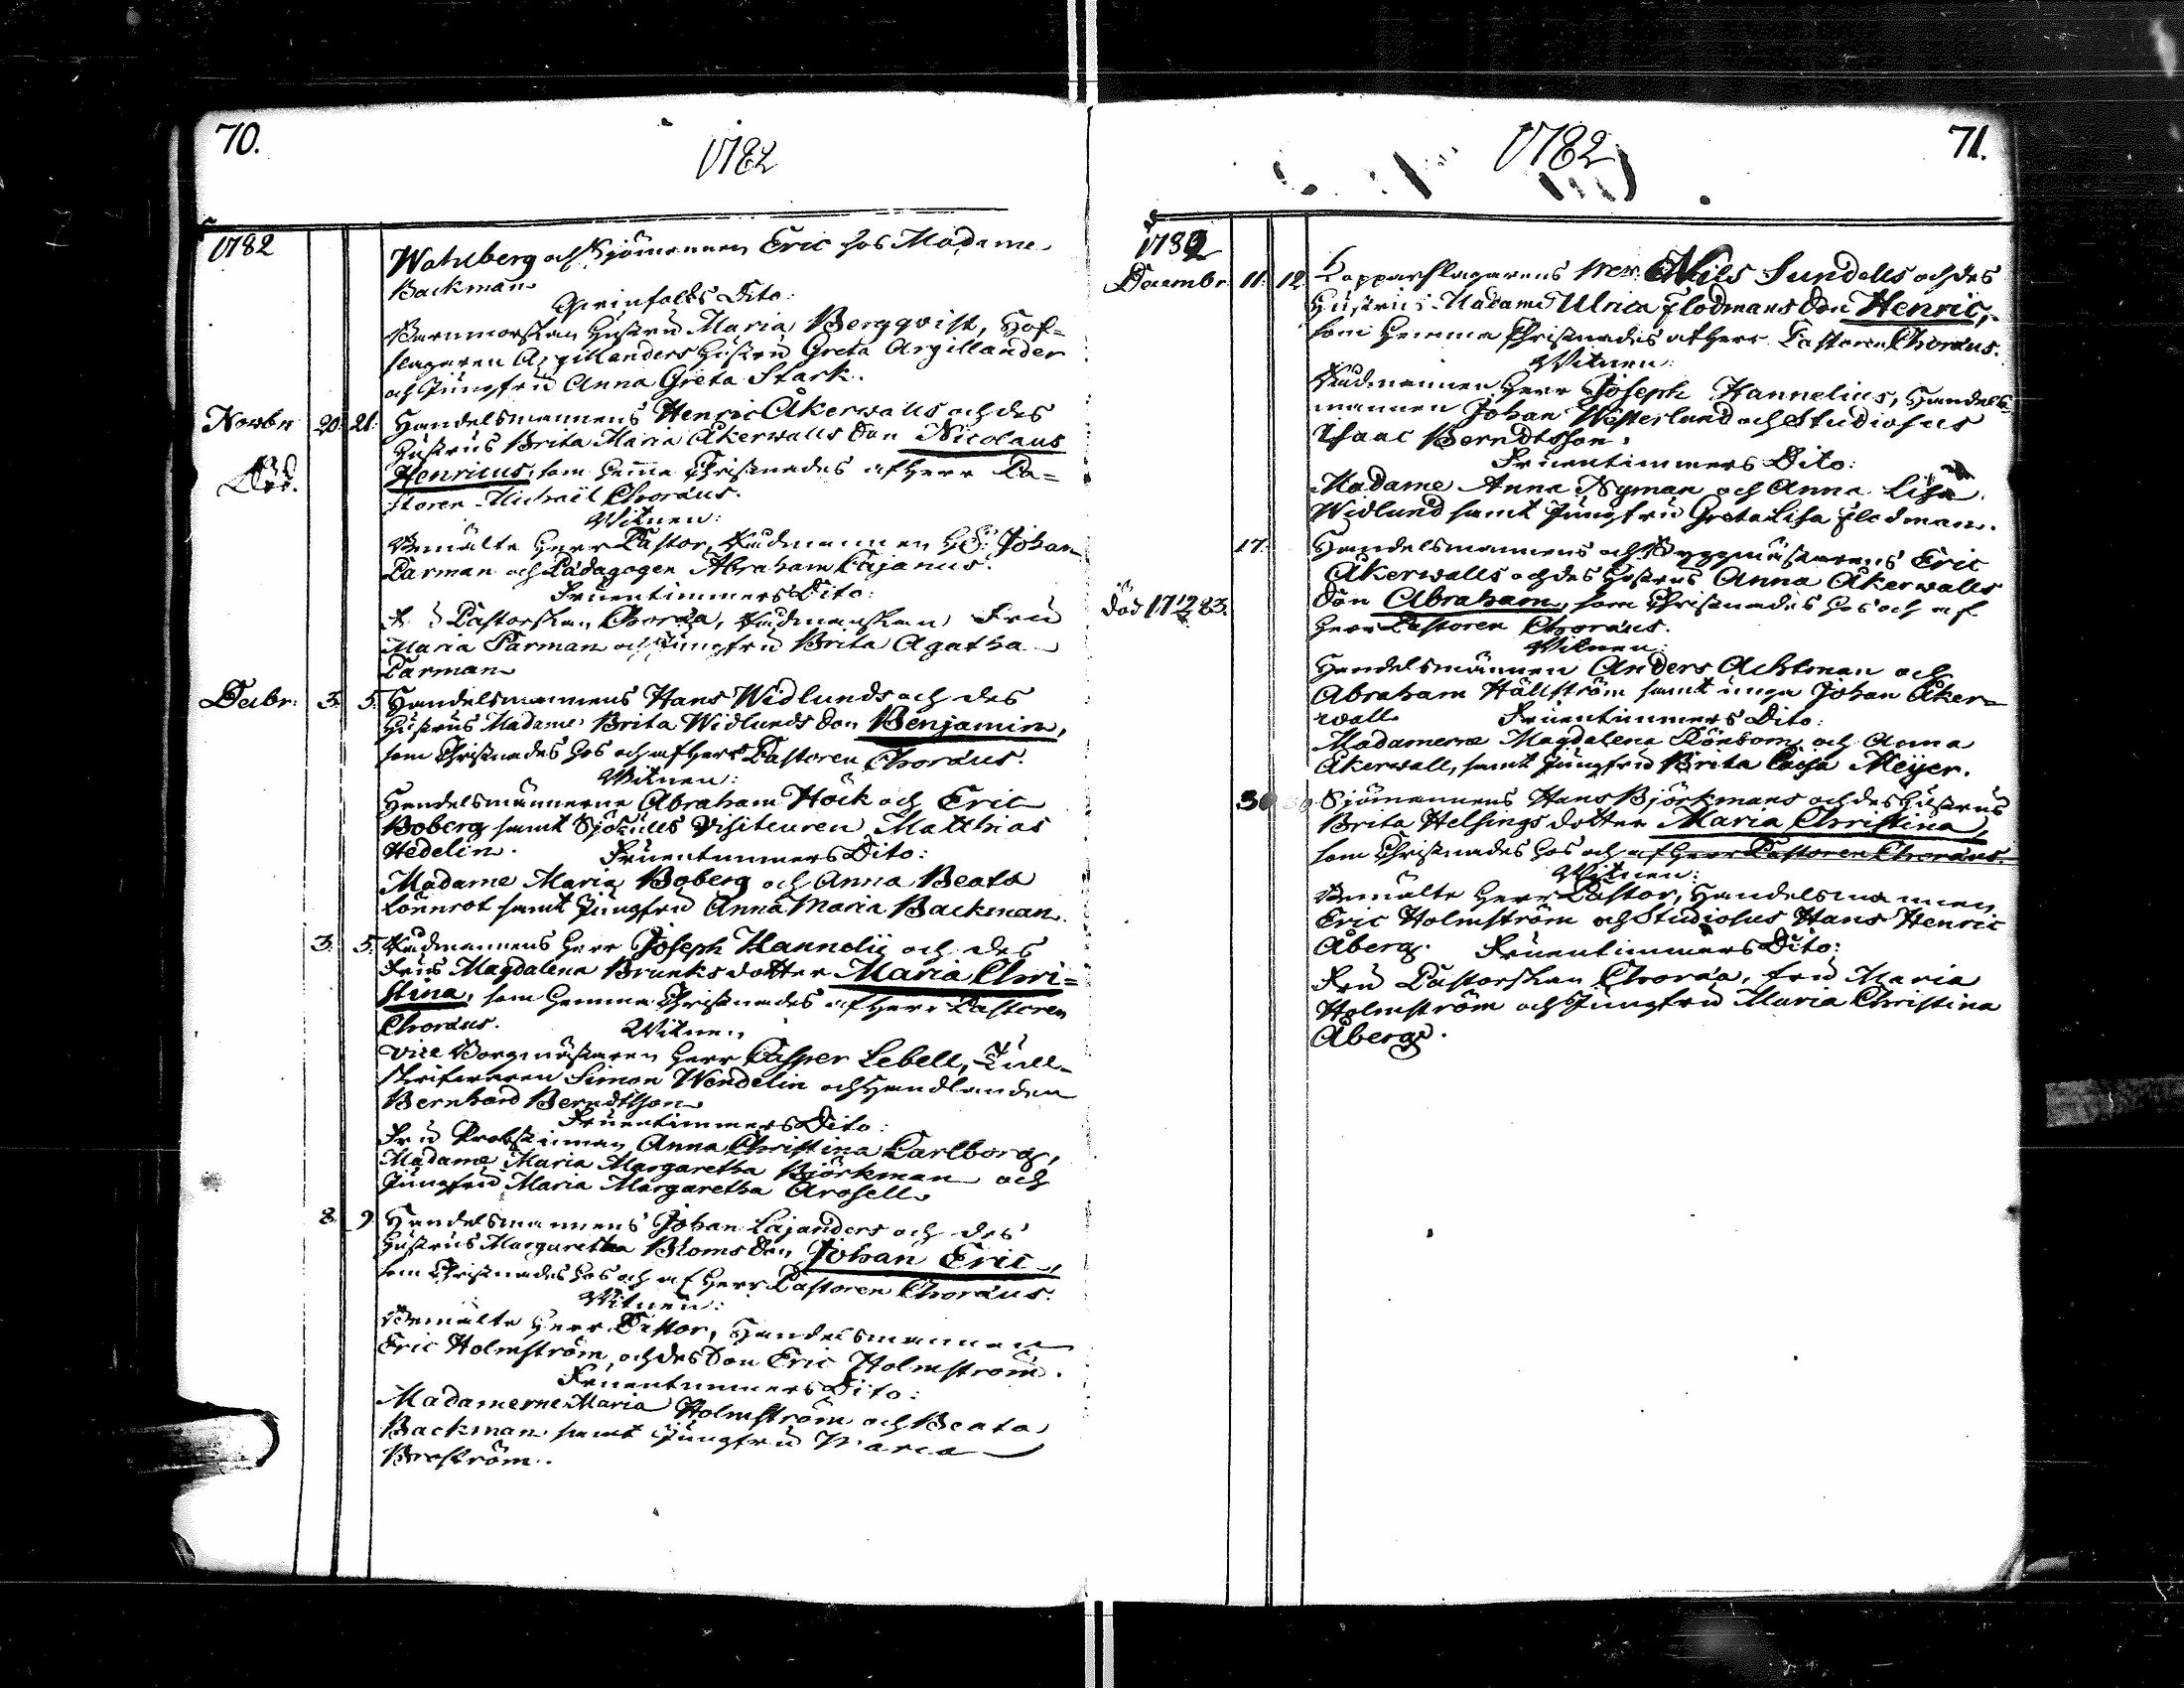 70.
1782
1782
Wahlberg och Sjömannen Eric hos Madame
Backman.
Qvinfolks Dito:
Barnmorskan Hustru Maria Bergqvist, Hof-
slagaren Argillanders Hustru Greta Argillander
och Jungfru Anna Greta Stark.
Novbr 20. 21. Handelsmannens Henric Åkerwalls och des
Hustrus Brita Maria Åkerwalls Son Nicolaus
Henricus, som hemma Christnades af Herr Pa-
storen Michaël Choræus.
Witnen:
Bemälte Herr Pastor, Rådmannen H: Johan
Parman och Pædagogen Abraham Cajanus.
Fruentimmers Dito:
Pastorskan Choræa, Rådmanskan Fru
Maria Parman och Jungfru Brita Agatha
Parman
Decbr: 3. 5. Handelsmannens Hans Widlunds och des
Hustrus Madame Brita Widlunds Son Benjamin,
som Christnades hos och af Herr Pastoren Choræus.
Witnen:
Handelsmännerne Abraham Höck och Eric
Boberg samt Sjötulls Visiteuren Matthias
Hedelin.
Fruentimmers Dito:
Madame Maria Boberg och Anna Beata
Lönnrot samt Jungfru Anna Maria Backman.
3. 5. Rådmannens Herr Joseph Hannelii och des
Frus Magdalena Brunks dotter Maria Chri-
stina, som hemma Christnades af Herr Pastoren
Choræus.
Witnen,
Vice Borgmästaren Herr Casper Lebell, Tull-
skrifvaren Simon Wendelin och Handlanden
Bernhard Berndtson
Fruentimmers Dito:
Fru Probstinnan Anna Christina Carlborg,
Madame Maria Margaretha Björkman och
Jungfru Maria Margaretha Arosell.
8. 9. Handelsmannens Johan Lajanders och des
Hustrus Margaretha Bloms Son Johan Eric,
som Christnades hos och af Herr Pastoren Choræus.
Witnen:
Bemälte Herr Pastor, Handelsmannen
Eric Holmström, och des Son Eric Holmström.
Fruentimmers Dito:
Madamerne Maria Holmström och Beata
Backman samt Jungfru Maria
Broström.
71.
1782
1782
Decembr 11. 12. Kopparslagarens Nils Sundells och des
Hustrus Madame Ulrica Flodmans Son Henric,
som hemma Christnades af Herr Pastoren Choræus.
Witnen:
Rådmannen Herr Joseph Hannelius, Handels-
mannen Johan Westerlund och Studiosus
Isaac Berndtsson.
Fruentimmers Dito:
Madame Anna Nyman och Anna Lisa
Widlund samt Jungfru Greta Lisa Flodman.
17. Handelsmannens och Byggmästarens Eric
Åkerwalls och des Hustrus Anna Åkerwalls
Död 17 83. Son Abraham, som Christnades hos och af
Herr Pastoren Choræus.
Witnen:
Handelsmännen Anders Achtman och
Abraham Hällström samt unga Johan Åker-
wall
Fruentimmers Dito:
Madamerne Magdalena Rönbom och Anna
Åkerwall, samt Jungfru Brita Cajsa Meijer.
30 Sjömannens Hans Björkmans och des Hustrus
Brita Helsings dotter Maria Christina,
som Christnades hos och af Herr Pastoren Choræus.
Witnen:
Bemälte Herr Pastor, Handelsmannen
Eric Holmström och Studiosus Hans Henric
Åberg.
Fruentimmers Dito:
Fru Pastorskan Choræa, Fru Maria
Holmström och Jungfru Maria Christina
Åberg.